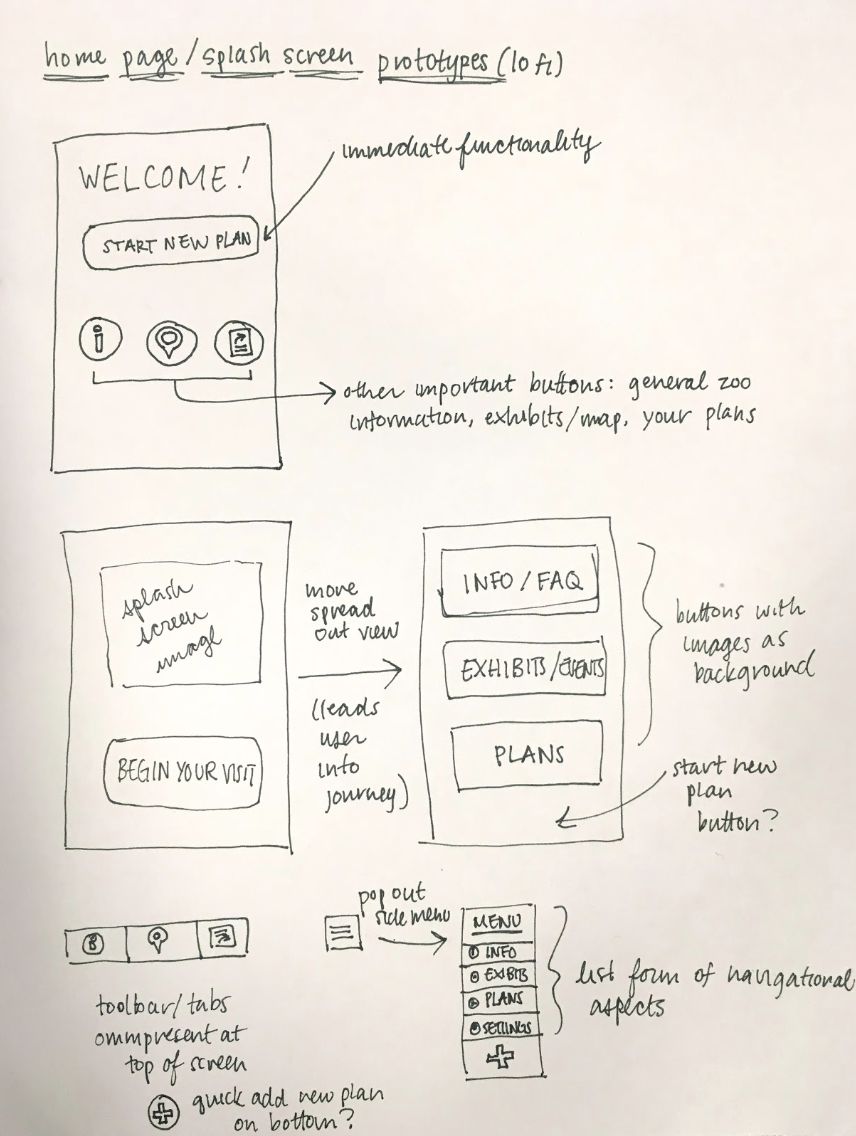 home page/splash screen prototypes (lo fi)
WELCOME!
START NEW PLAN
immediate functionality
i
other important buttons: general zoo
information, exhibits/map, your plans
splash
screen
image
BEGIN YOUR VISIT
move
spread
out view
(leads
user
into
journey)
INFO/FAQ
EXHIBITS/EVENTS
PLANS
buttons with
images as
background
start new
plan
button?
toolbar/tabs
omnipresent at
top of screen
quick add new plan
on bottom?
pop out
side menu
MENU
INFO
EXIBITS
PLANS
SETTINGS
list form of navigational
aspects